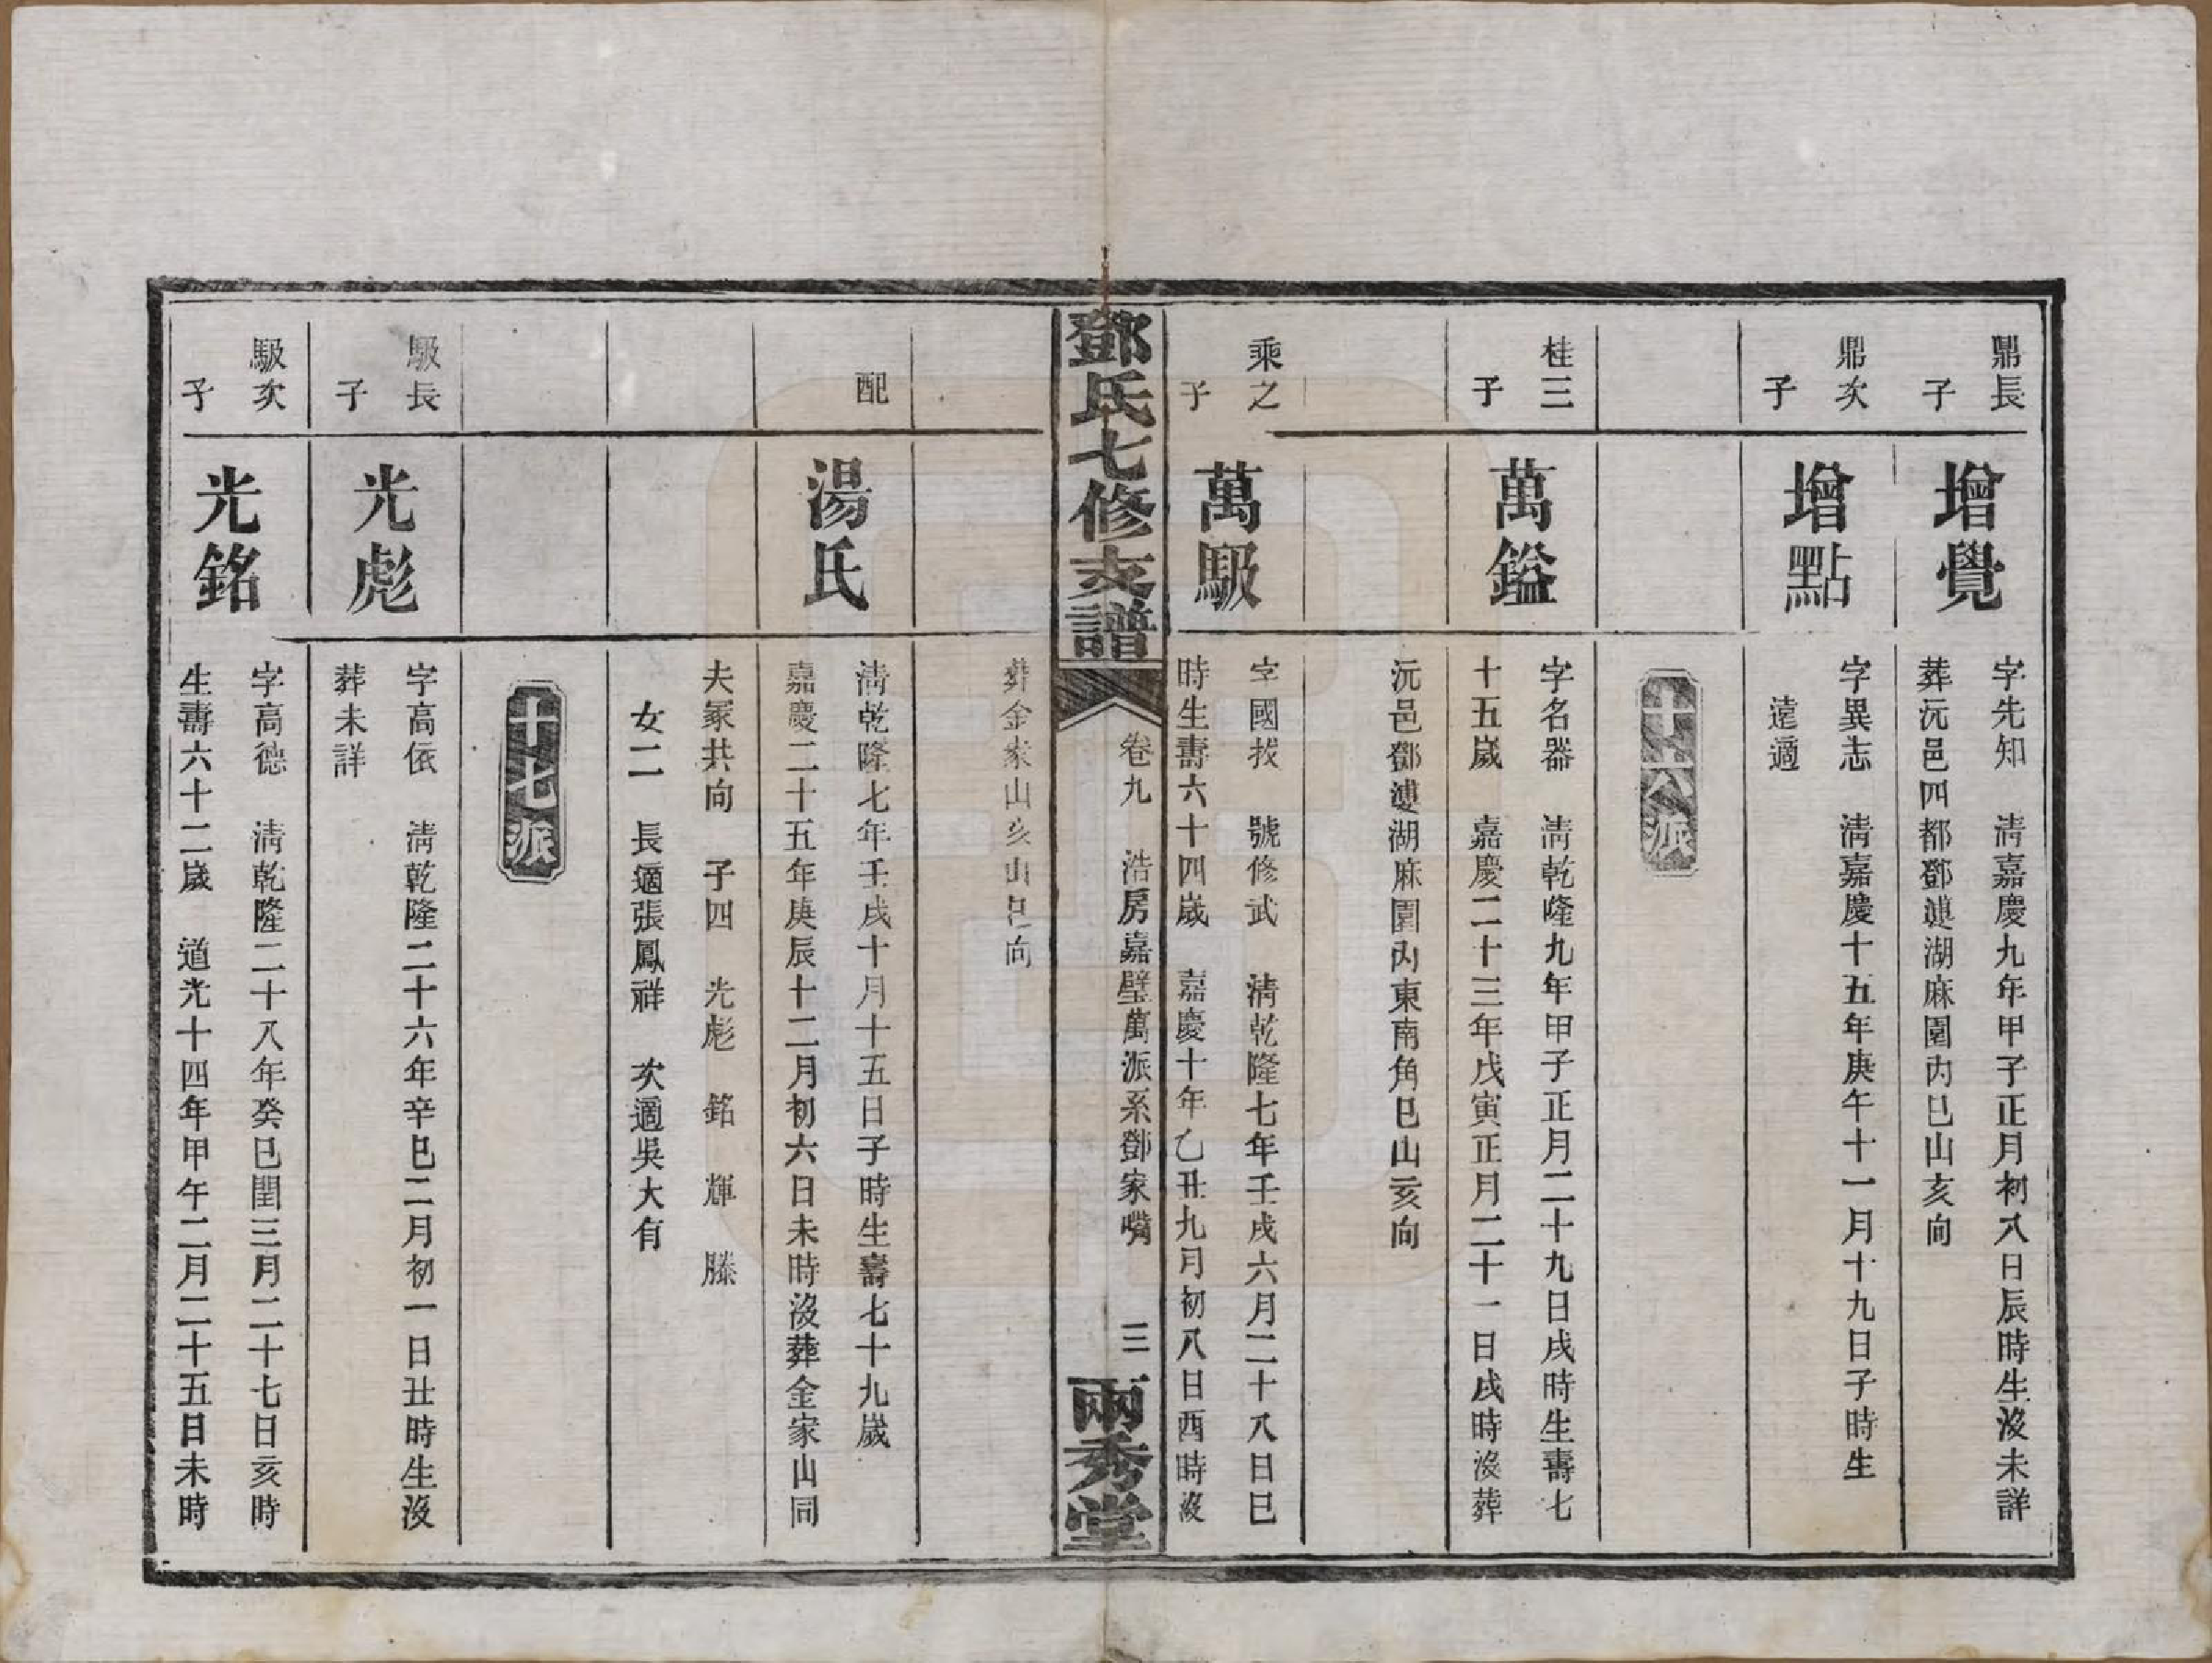 鼎長
子
增覺
字先知　淸嘉慶九年甲子正月初八日辰時生沒未詳
葬沅邑四都鄧𨘷湖麻園內巳山亥向
鼎次
子
增點
字異志　淸嘉慶十五年庚午十一月十九日子時生
遠適
十六派
桂三
子
萬鎰
字名器　淸乾隆九年甲子正月二十九日戌時生壽七
十五歲　嘉慶二十三年戊寅正月二十一日戌時沒葬
沅邑鄧湖麻園內東南角巳山亥向
乘之
子
萬馭
字國拔　號修武　淸乾隆七年壬戌六月二十八日巳
時生壽六十四歲　嘉慶十年乙丑九月初八日酉時沒
鄧氏七修支譜
卷九　浩房嘉璧萬派系鄧家嘴　三
兩秀堂
葬金家山亥山巳向
配
湯氏
淸乾隆七年壬戌十月十五日子時生壽七十九歲
嘉慶二十五年庚辰十二月初六日未時沒葬金家山同
夫冢共向　子四　光彪　銘　輝　滕
女二　長適張鳳祥　次適吳大有
十七派
馭長
子
光彪
字高依　淸乾隆二十六年辛巳二月初一日丑時生沒
葬未詳
馭次
子
光銘
字高德　淸乾隆二十八年癸巳閏三月二十七日亥時
生壽六十二歲　道光十四年甲午二月二十五日未時